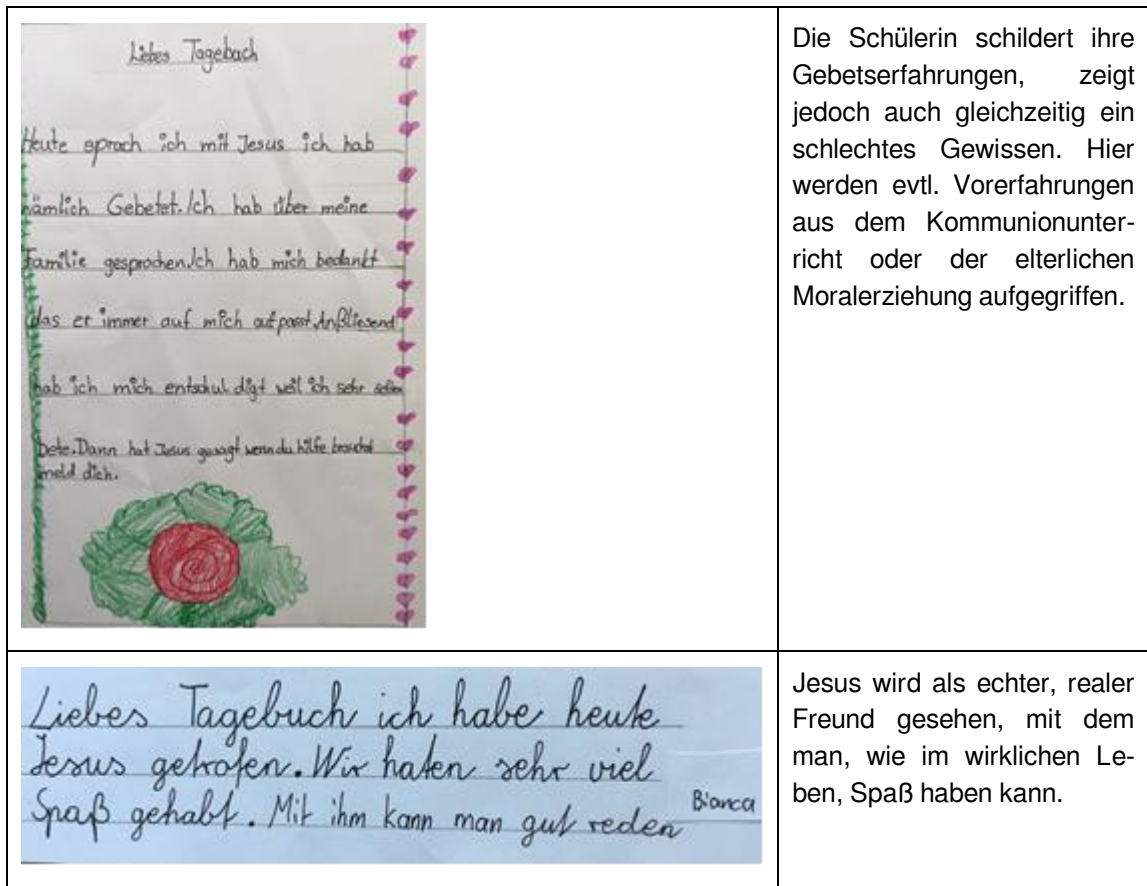 Liebes Tagebach
Heute sprach ich mit Jesus ich hab
nämlich Gebetet. Ich hab über meine
Familie gesprochen. Ich hab mich bedankt
das er immer auf mich aufpasst. Anßliesend
hab ich mich entschuldigt weil ich sehr selten
bete. Dann hat Jesus gesagt wenn du hilfe brauchst
meld dich.
Die Schülerin schildert ihre
Gebetserfahrungen, zeigt
jedoch auch gleichzeitig ein
schlechtes Gewissen. Hier
werden evtl. Vorerfahrungen
aus dem Kommunionunter-
richt oder der elterlichen
Moralerziehung aufgegriffen.
Liebes Tagebuch ich habe heute
Jesus getrofen. Wir haten sehr viel
Spaß gehabt. Mit ihm kann man gut reden
Bianca
Jesus wird als echter, realer
Freund gesehen, mit dem
man, wie im wirklichen Le-
ben, Spaß haben kann.